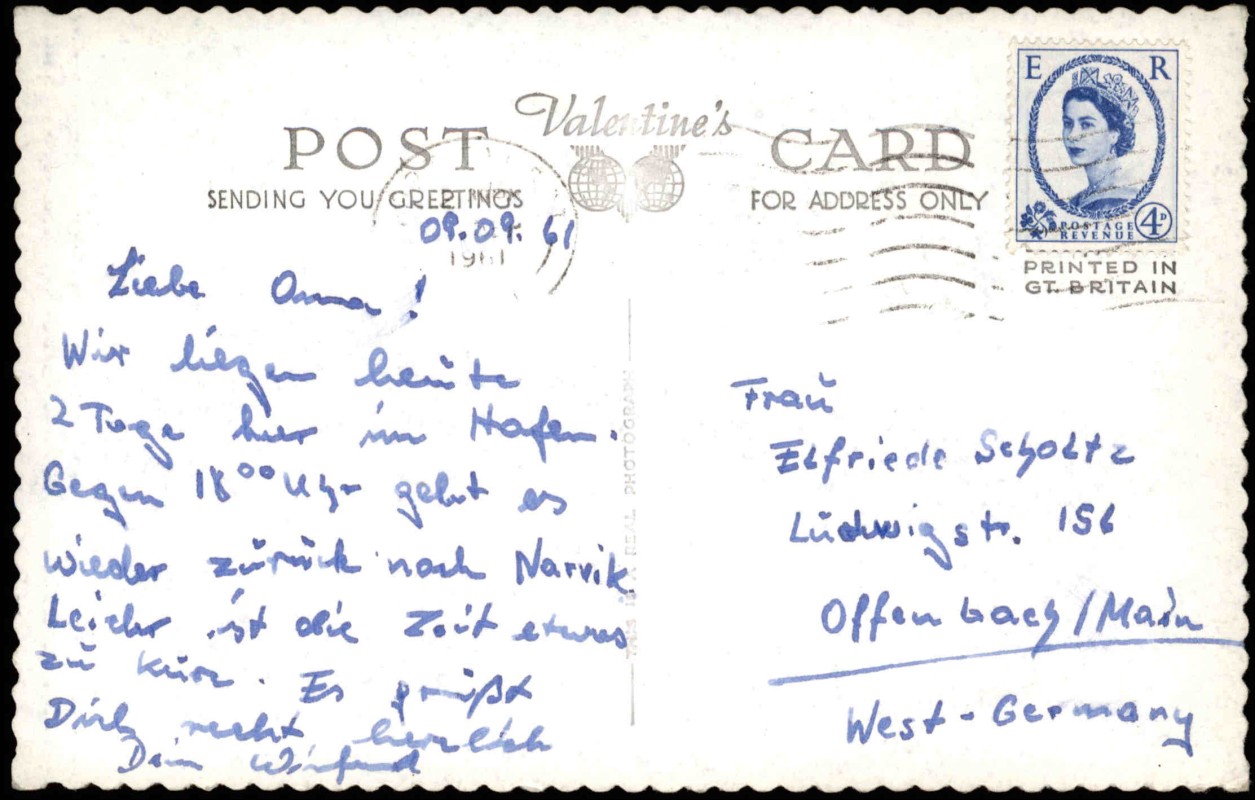 Valentine's
POST CARD
SENDING YOU GREETINGS
FOR ADDRESS ONLY
E R
POSTAGE
REVENUE
4D
PRINTED IN
GT. BRITAIN
1961
09.09.61
Liebe Oma!
Wir liegen heute
2 Tage hier im Hafen.
Gegen 18⁰⁰ Uhr geht es
wieder zurück nach Narvik.
Leider ist die Zeit etwas
zu kurz. Es grüßt
Dich recht herzlich
Dein Winfried
THIS IS A REAL PHOTOGRAPH
Frau
Elfriede Scholtz
Ludwigstr. 156
Offenbach/Main
West-Germany